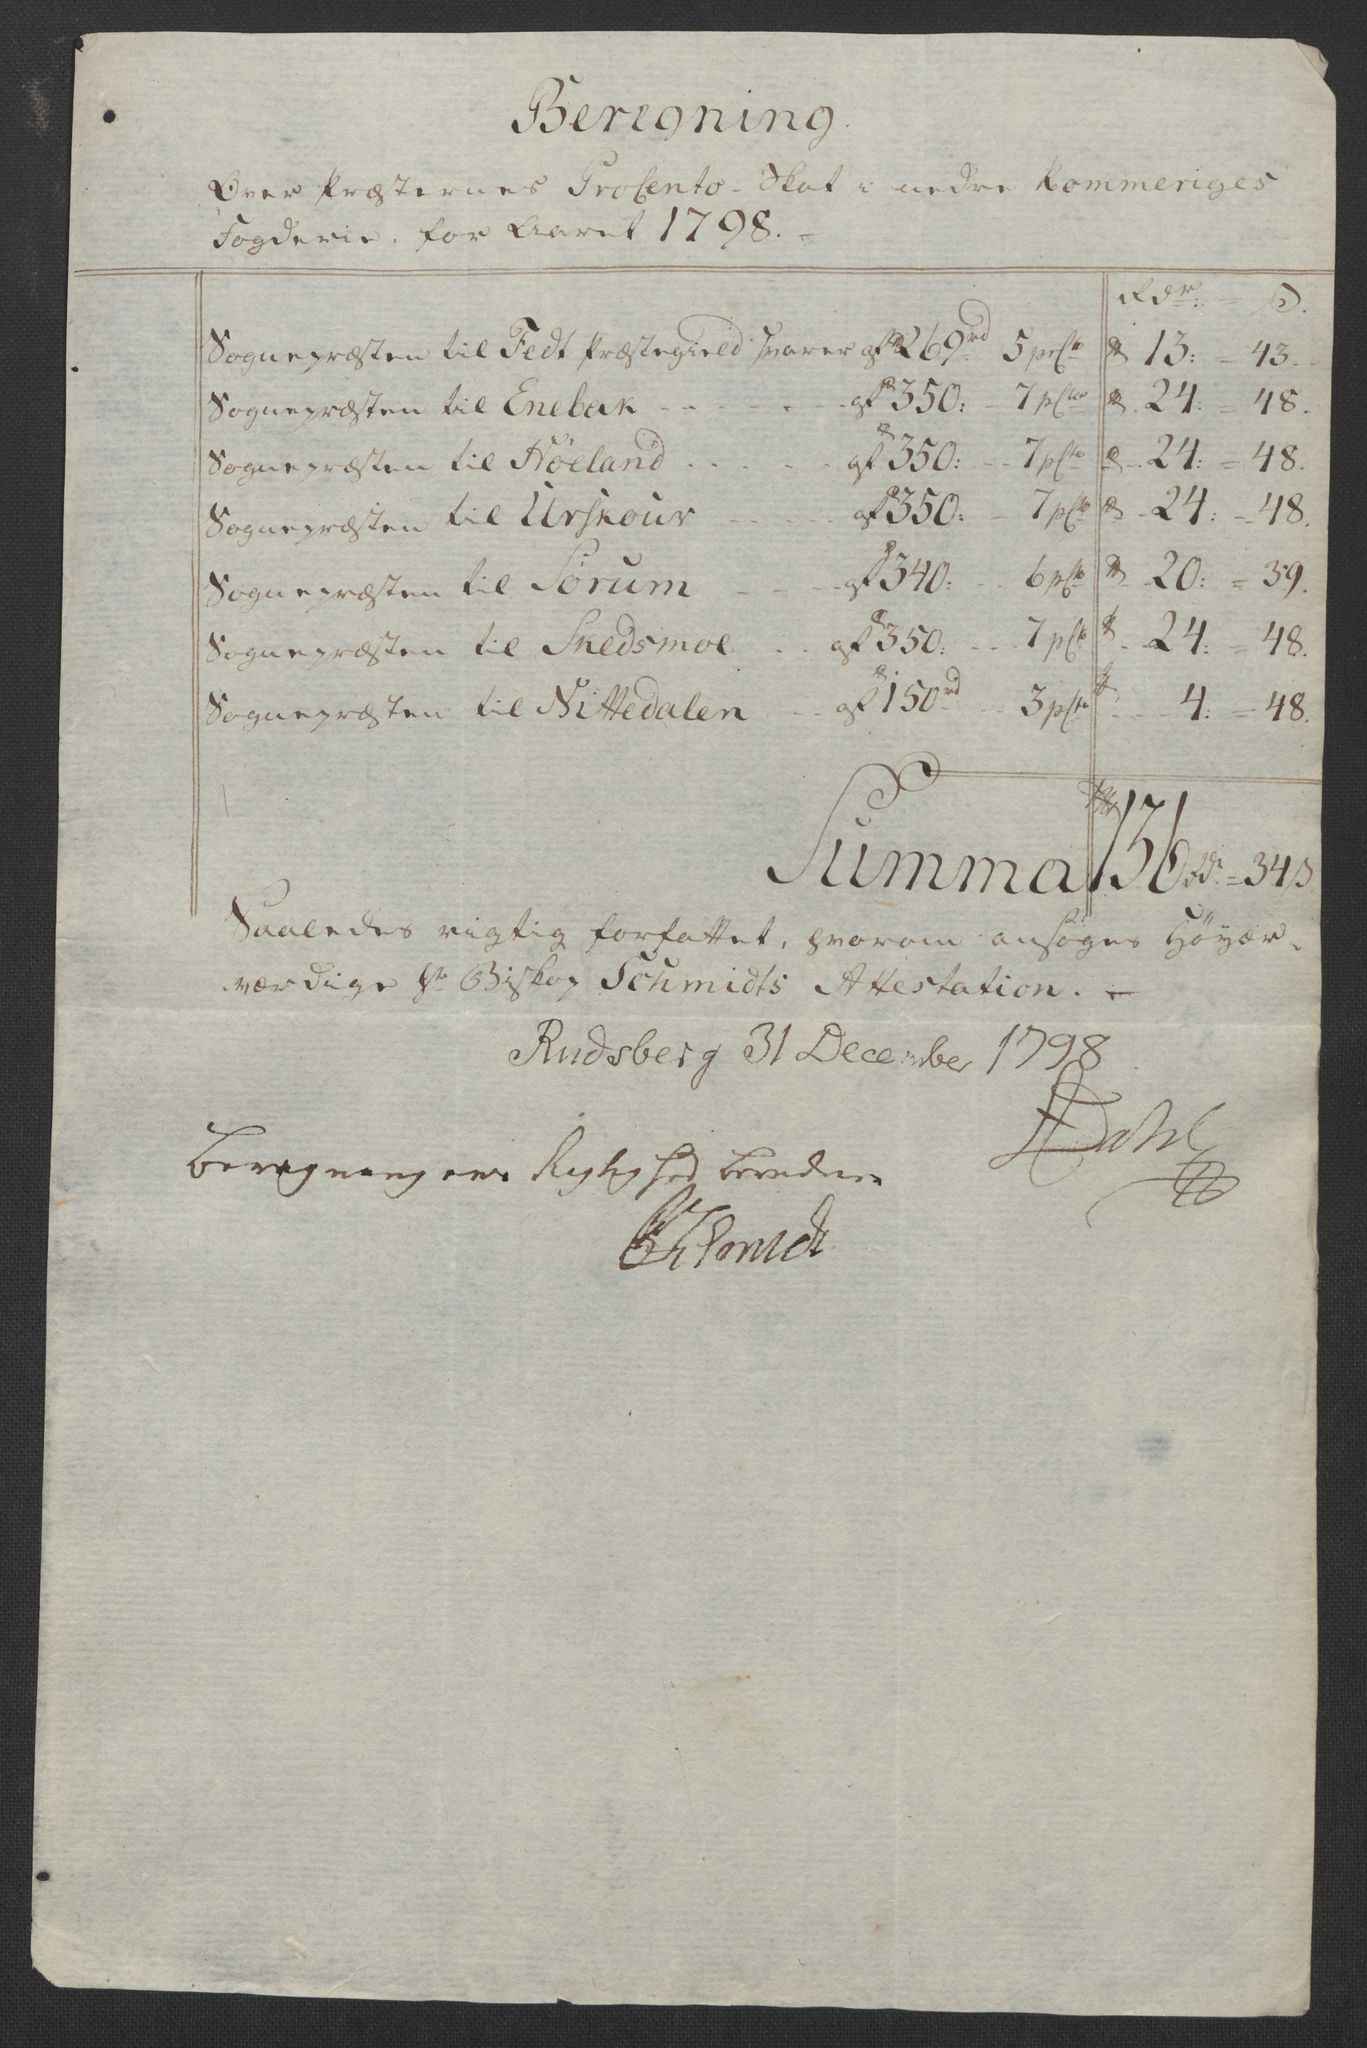 Beregning
Over Præsternes Procento-Skat i nedre Rommeriges
Fogderie, for Aaret 1798.
Rdr: ß.
Sognepræsten til Fedt Præstegield svarer af 269rd 5 pCto 13: = 43.
Sognepræsten til Enebak af 350: 7 pCto 24: = 48.
Sognepræsten til Høeland af 350: 7 pCto 24: = 48.
Sognepræsten til Urskour af 350: 7 pCto 24: = 48.
Sognepræsten til Sørum af 340: 6 pCto 20: = 39.
Sognepræsten til Skedsmoe af 350: 7 pCto 24: = 48.
Sognepræsten til Nittedalen af 150rd 3 pCto 4: = 48.
Summa 136 rdr = 34 ß
Saaledes rigtig forfattet, hvorom ansøges Höyær-
værdige Hr Biskop Schmidts Attestation. -
Rudsberg 31 December 1798
Dahl
Beregningens Rigtighed bevidner
Schmidt